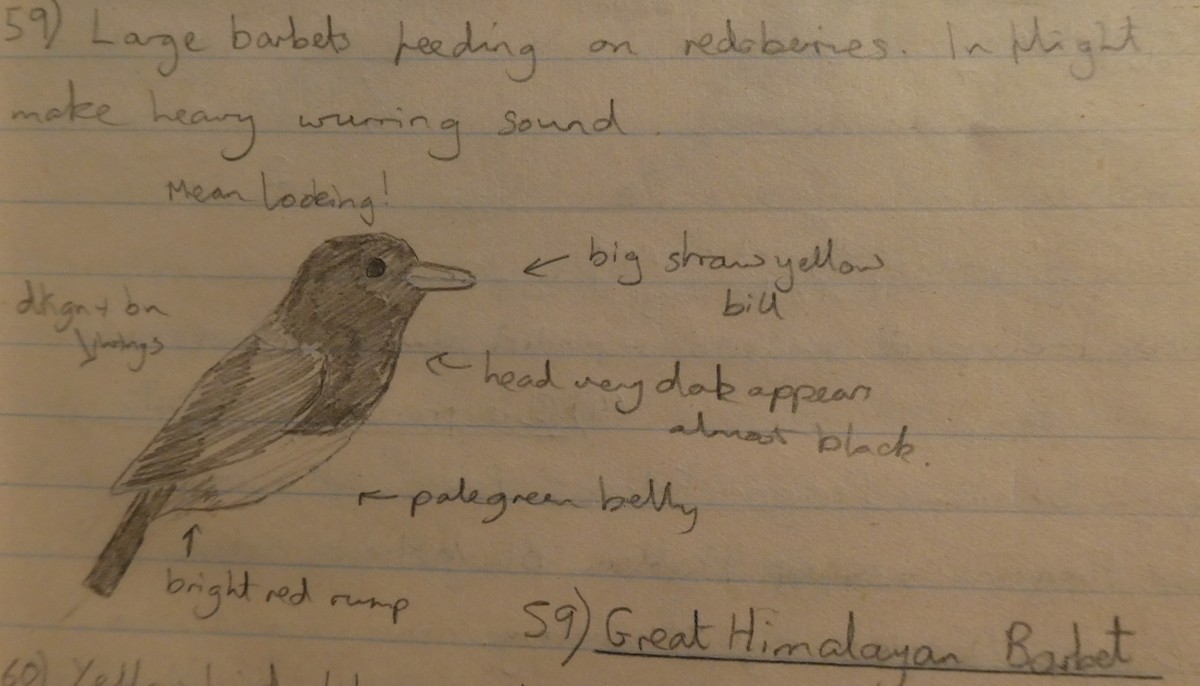 59) Large barbets feeding on redsberries. In flight
make heavy wurring sound.
Mean looking!
big straw yellow
bill
dkgn + bn
head very dark appears
almost black.
pale green belly
bright red rump
59) Great Himalayan Barbet
60) Yellow